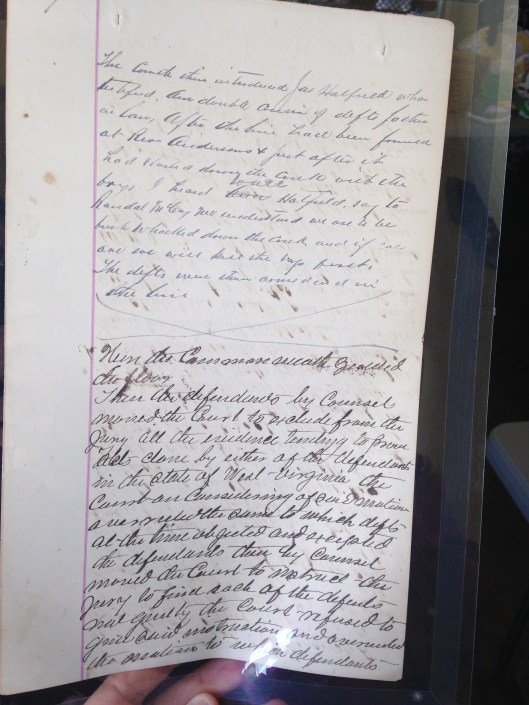 The Comth then introduced Jas Hatfield who
testified. Am double cousin of defts father
in law, After the line had been formed
at Rev. Andersons & just after it
had started down the creek with the
boys I heard Wall Hatfield say to
Randal McCoy we understand we are to be
bushwhacked down the creek and if
are we will the boys first.
The defts were then armed in
the line
Here the Commonwealth
the
Then the defendants by Counsel
moved the Court to exclude from the
Jury all the evidence tending to prove
acts done by either of the defendants
in the state of West Virginia the
Court on Considering of said motion
overruled the same to which defts
at the time objected and excepted
the defendants then by Counsel
moved the Court to instruct the
Jury to find each of the defts
not guilty the Court refused to
give said instruction and overruled
the motion to which defendants